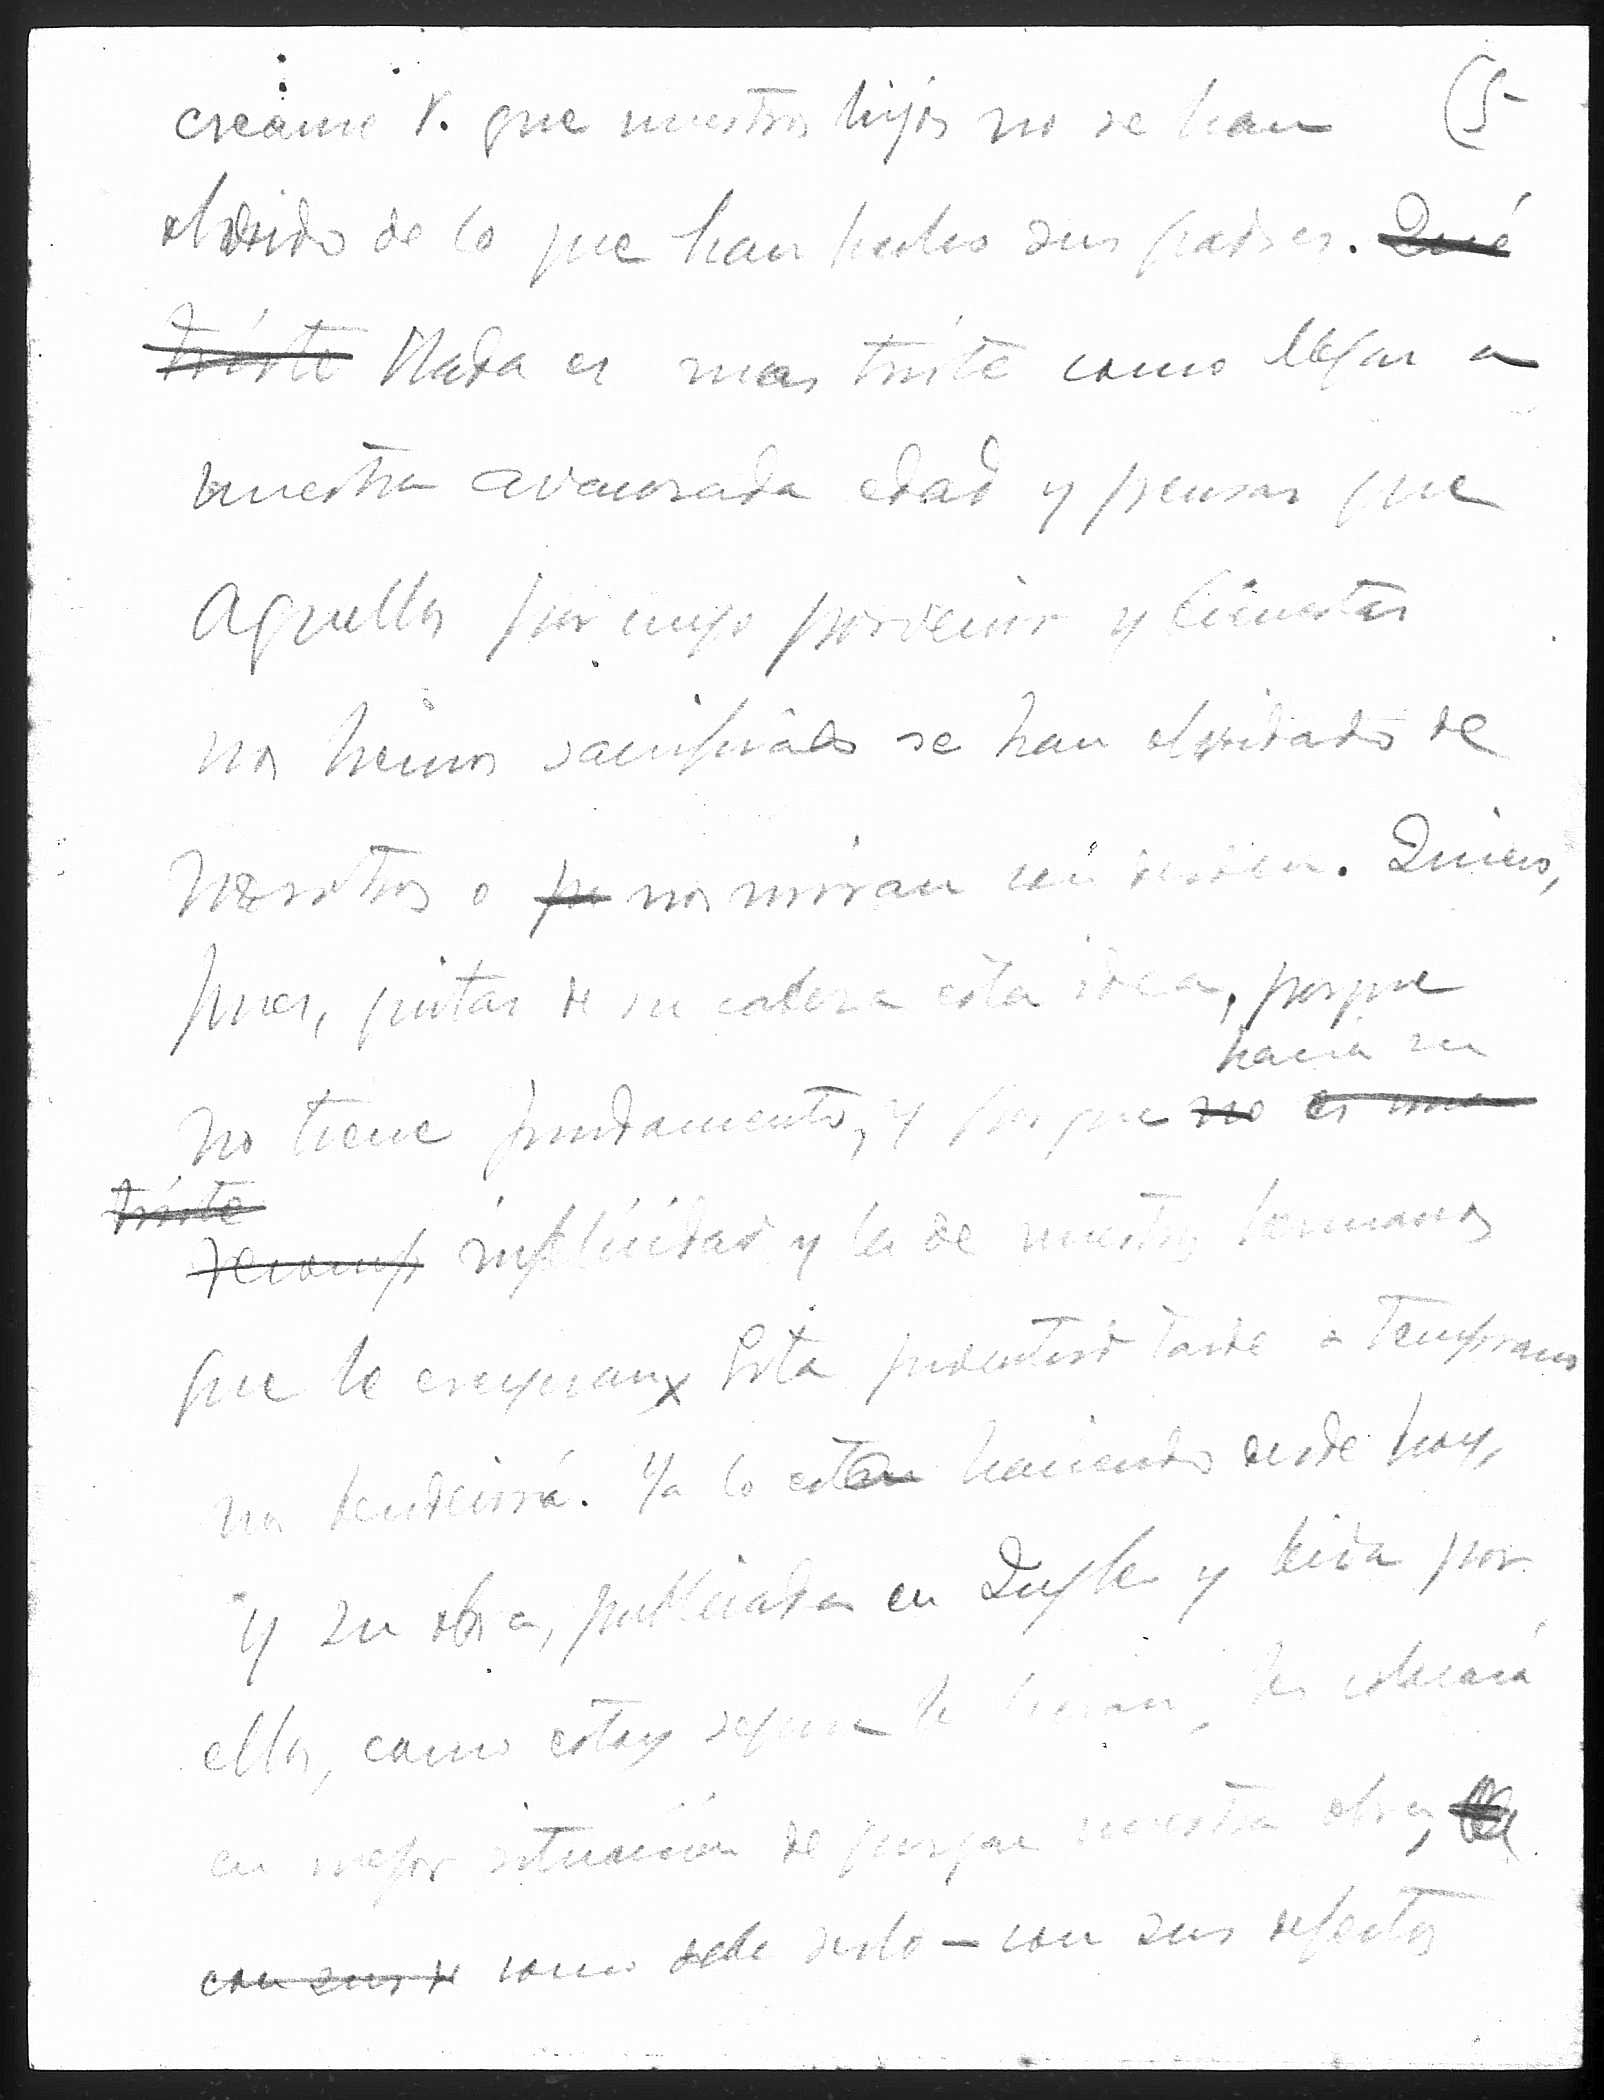 (5-
creáme V. que nuestros hijos no se han
olvidado de lo que han hecho sus padres. Qué
triste Nada es mas triste como llegar a
nuestra avanzada edad y pensar que
Aquellos por cuyo porvenir y bienestar
nos hemos sacrificado se han olvidado de
nosotros o pe nos miran con desden. Quiero,
pues, quitar de su cabeza esta idea, porque
hacia su
no tiene fundamento, y porque no es una
triste
recomp infelicidad y la de nuestros hermanos
que lo creyeran x Esta juventud tarde o temprano
nos bendeciria. Ya lo estan haciendo desde hoy,
y su obra, publicada en Ingles y leida por
ellos, como estoy segura lo haran, los colocará
en mejor situación de juzgar nuestra obra,
con sus de como debe serlo - con sus defectos